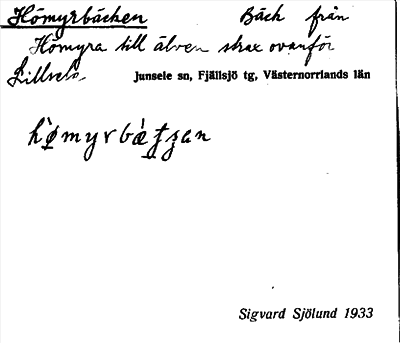 Hömyrbäcken Bäck från
Hömyra till älven strax ovanför
Lillsela. Junsele sn, Fjällsjö tg, Västernorrlands län
hø̀myrbæ̀ʈʂan
Sigvard Sjölund 1933